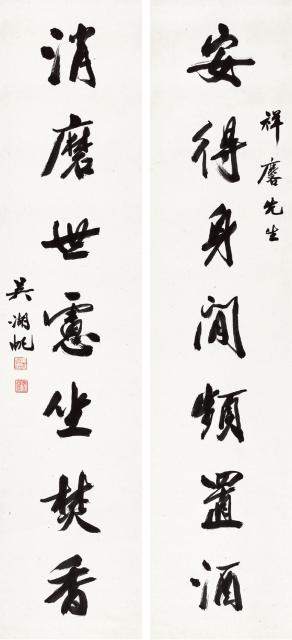 安得身閒頻置酒
祥麐先生
消磨世慮坐焚香
吳湖帆